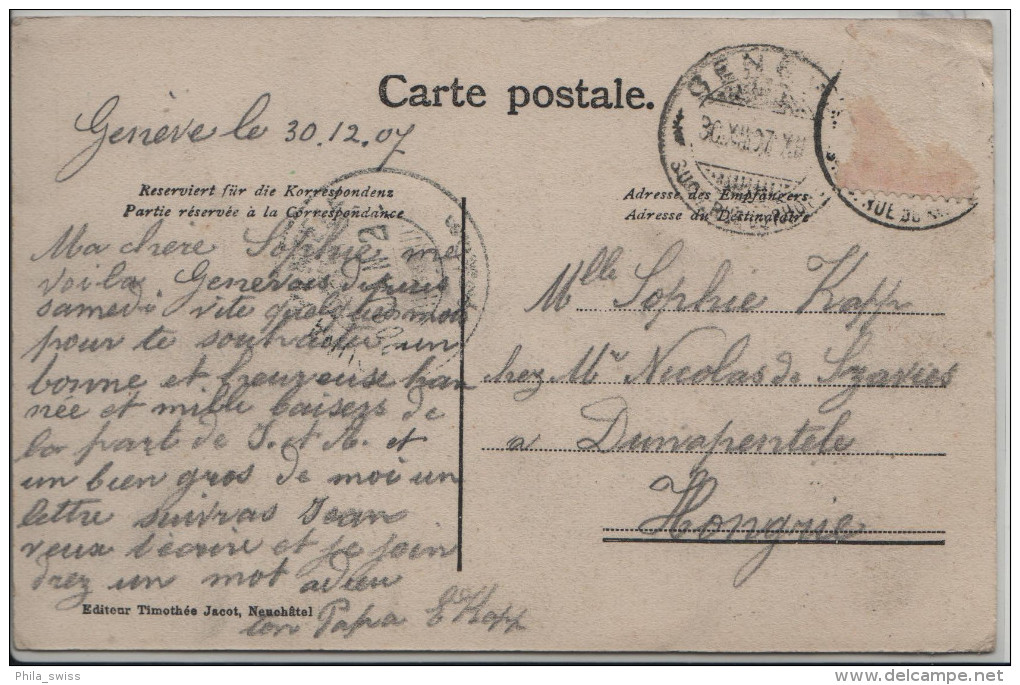 Carte postale.
Genève le 30.12.07
Reserviert für die Korrespondenz
Partie réservée à la Correspondance
Adresse des Empfängers
Adresse du Destinataire
GENÈ
30.XII.07
RUE DU
Ma chère Sophie me
voila Genevois depuis
samedi vite quelques mots
pour te souhaiter un
bonne et heureuse l'an
née et mille baisers de
la part de J. et A. et
un bien gros de moi un
lettre suivras Jean
veux t'ecrire et je join
drez un mot adieu
ton Papa E Kopp
Mlle Sophie Kopp
chez Mr Nicolas de Szavies
a Dunapentele
Hongrie
Editeur Timothée Jacot, Neuchâtel
Phila_swiss
www.delcampe.net